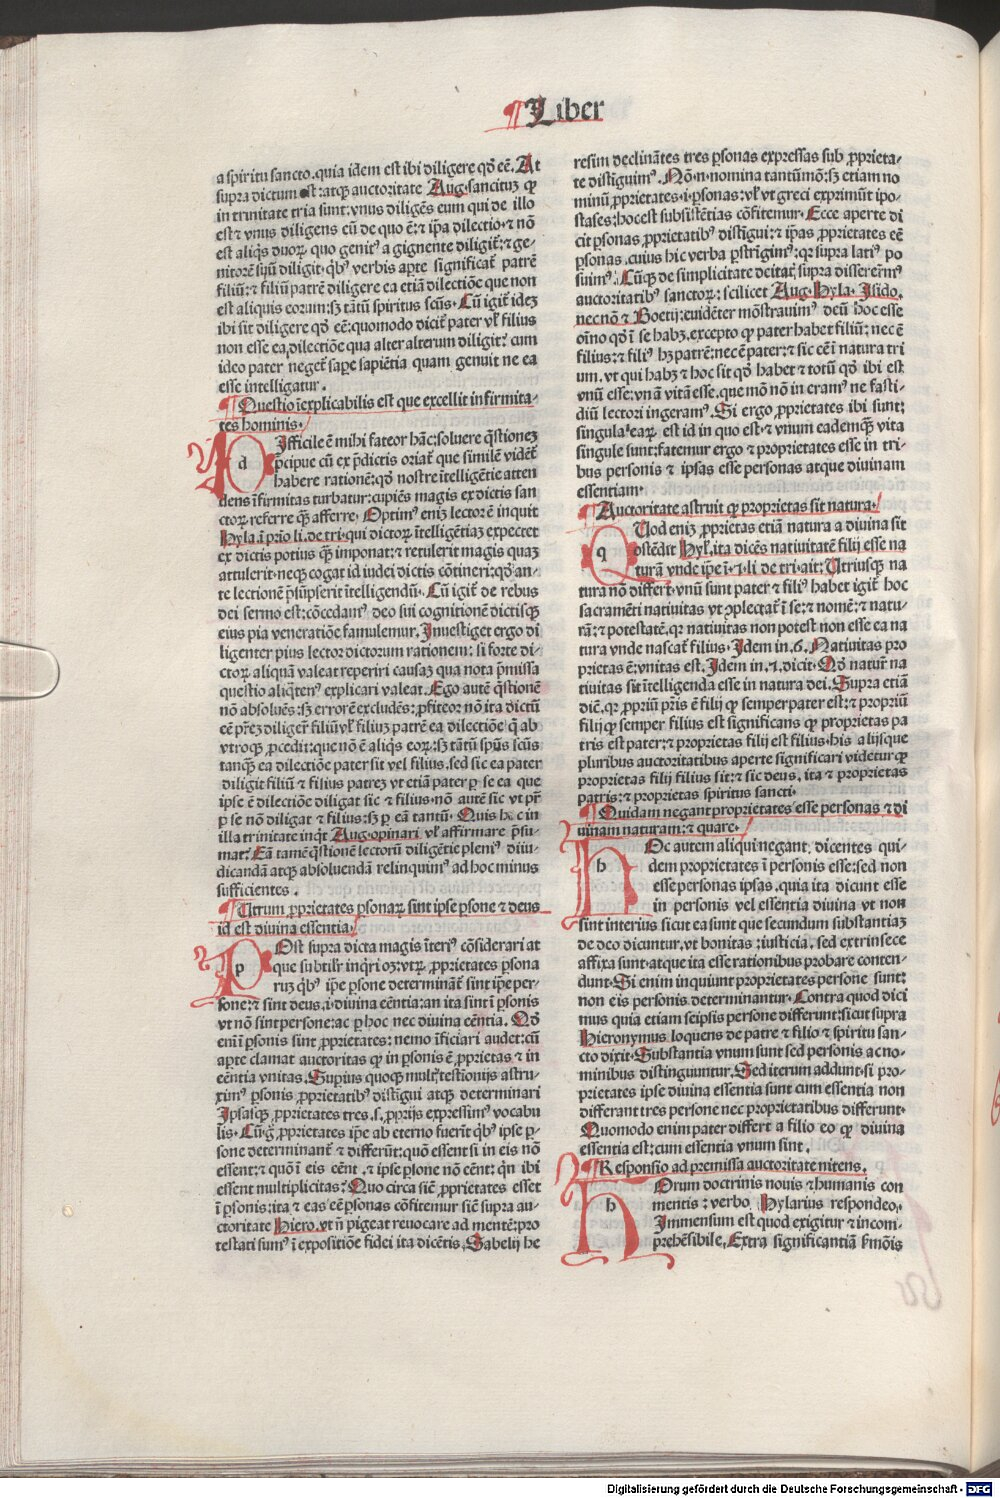 ¶Liber
a spiritu sancto. quia idem est ibi diligere qđ eē. At
supra dictum est: atq; auctoritate Aug. sancituꝫ ꝙ
in trinitate tria sunt: vnus diligēs eum qui de illo
est ⁊ vnus diligens eū de quo ē: ⁊ ip̄a dilectio. ⁊ nō
est aliq̇s duoꝝ quo genitꝰ a gignente diligit̄: ⁊ ge⸗
nitorē suū diligit. qb̄ꝰ verbis aꝑte significat̄ patrē
filiū: ⁊ filiū patrē diligere ea etiā dilectiōe que non
est aliquis eorum: sꝫ tātū spiritus scūs. Cū igit̄ ideꝫ
ibi sit diligere qđ eē: quomodo dicit̄ pater vł filius
non esse ea dilectiōe qua alter alterum diligit: cum
ideo pater neget̄ saꝑe sapiētia quam genuit ne ea
esse intelligatur.
¶Questio īexplicabilis est que excellit infirmita⸗
tes hominis.
dIfficile ē mihi fateor hāc: soluere q̄stioneꝫ
p̄cipue cū ex p̄dictis oriat̄ que similē vidēt̄
habere rationē: qđ nostre ītelligētie atten
dens īfirmitas turbatur: cupiēs magis ex dictis san
ctoꝝ referre q̄ꝫ afferre. Optimꝰ eniꝫ lector ē inquit
Hyla. ī prio li. de tri. qui dictoꝝ ītelligētiaꝫ expectet
ex dictis potius q̄ꝫ imponat: ⁊ retulerit magis quaꝫ
attulerit: neq; cogat id iudei dictis cōtineri: qđ an⸗
te lectionē p̄sūpserit ītelligendū. Cū igit̄ de rebus
dei sermo est: cōcedamꝰ deo sui cognitionē dictisq;
eius pia veneratiōe famulemur. Inuestiget ergo di
ligenter pius lector dictorum rationem: si forte di⸗
ctoꝝ aliquā valeat reperiri causaꝫ qua nota p̄missa
questio aliq̄tenꝰ explicari valeat. Ego autē q̄stionē
nō absoluēs: sꝫ errorē excludēs: ꝓfiteor nō ita dictū
eē p̄reꝫ diligeř filiū vł filiuꝫ patrē ea dilectiōe q̄ ab
vtroq; ꝓcedit: que nō ē aliq̇s eoꝝ: sꝫ tātū sp̄us scūs
tanq̄ꝫ ea dilectiōe pater sit vel filius. sed sic ea pater
diligit filiū ⁊ filius patreꝫ vt etiā pater ꝑ se ea que
ipse ē dilectiōe diligat sic ⁊ filius. nō autē sic vt p̄r
ꝑ se nō diligat ⁊ filius: sꝫ ꝑ eā tantū. Quis hec in
illa trinitate inq̇t Aug. opinari vł affirmare p̄su⸗
mat: Eā tamē q̄stionē lectorū diligētie pleniꝰ diiu⸗
dicandā atq; absoluendā relinquimꝰ ad hoc minus
sufficientes.
¶Utrum ꝓprietates ꝑsonaꝝ sint ipse ꝑsone ⁊ deus
id est diuina essentia.
pOst supra dicta magis īteriꝰ cōsiderari at
que subtiłr inq̇ri oꝫ: vtꝝ ꝓprietates ꝑsona
ruꝫ qb̄ꝰ ip̄e ꝑsone determinant̄ sint ip̄e per⸗
sone: ⁊ sint deus. i. diuina eēntia: an ita sint ī ꝑsonis
vt nō sint persone: ac ꝑ hoc nec diuina cēntia. Qđ
eni ī ꝑsonis sint ꝓprietates: nemo īficiari audet: cū
aꝑte clamat auctoritas ꝙ in ꝑsonis ē ꝓprietas ⁊ in
eēntia vnitas. Superius quoq; mult̄ testionijs astru⸗
ximꝰ ꝑsonis ꝓprietatibꝰ distīgui atq; determinari
Ipsasq; ꝓprietates tres. s. ꝓprijs expressimꝰ vocabu
lis. Cū.g̊ ꝓprietates ip̄e ab eterno fuerīt qb̄ꝰ ipse ꝑ⸗
sone determinant̄ ⁊ differūt: quō essent si in eis nō
essent: ⁊ quō ī eis cēnt. ⁊ ipse ꝑsone nō cēnt: qn̄ ibi
essent multiplicitas: Quo circa sicē ꝓprietates esset
ī ꝑsonis: ita ⁊ eas eē ꝑsonas cōfitemur sicē supra au⸗
ctoritate Hiero. vt n̄ pigeat reuocare ad mentē: pro
testati sumꝰ ī expositiōe fidei ita dicētis. Sabelij he
resim declinātes tres ꝑsonas expressas sub ꝓprieta⸗
te distīguimꝰ. Nō.n. nomina tantūmō: sꝫ etiam no
minū ꝓprietates. i. ꝑsonas: vł vt greci exprimūt ipo⸗
stases: hoc est subsistētias cōfitemur. Ecce aperte di
cit ꝑsonas ꝓprietatibꝰ distīgui: ⁊ ip̄as ꝓprietates eē
ꝑsonas. cuius hic verba ꝑstrīgimꝰ: qꝛ supra latiꝰ po
suimꝰ. Cūq; de simplicitate deitat̄ supra disserem̄ꝰ
auctoritatibꝰ sanctoꝝ: scilicet Aug. Hyla. Isido.
necnō ⁊ Boetij: euidēter mōstrauimꝰ deū hoc esse
oīno qđ ī se habꝫ. excepto ꝙ pater habet filiū: nec ē
filius: ⁊ filiꝰ hꝫ patrē: nec ē pater: ⁊ sic cē ī natura tri
um. vt qui habꝫ ⁊ hoc sit qđ habet ⁊ totū qđ ibi est
vnū esse: vnā vitā esse. que mō nō in eramꝰ ne fasti⸗
diū lectori ingeramꝰ. Si ergo ꝓprietates ibi sunt:
singula eaꝝ est id in quo est. ⁊ vnum eademq; vita
singule sunt: fatemur ergo ⁊ proprietates esse in tri⸗
bus personis ⁊ ipsas esse personas atque diuinam
essentiam.
¶Auctoritate astruit ꝙ proprietas sit natura.
qUod eniꝫ ꝓprietas etiā natura a diuina sit
ostēdit Hył. ita dicēs natiuitatē filij esse na
turā vnde ip̄e ī.1. li de tri. ait: Utriusq; na
tura nō differt. vnū sunt pater ⁊ filiꝰ habet igit̄ hoc
sacramēti natiuitas vt ↄplectat̄ ī se: ⁊ nomē: ⁊ natu⸗
rā: ⁊ potestatē. qꝛ natiuītas non potest non esse ea na
tura vnde nascat̄ filius. Idem in. 6. Natiuitas pro
prietas ē: vnitas est. Idem in.1. dicit. Qđ natuř na
tiuitas sit ītelligenda esse in natura dei. Supra etiā
diē. ꝙ ꝓpriū p̄ris ē filij ꝙ semper pater est: ⁊ propriū
filij ꝙ semper filius est significans ꝙ proprietas pa
tris est pater: ⁊ proprietas filij est filius. his alijsque
pluribus auctoritatibus aperte significari videtur ꝙ
proprietas filij filius sit: ⁊ sic deus. ita ⁊ proprietas
patris: ⁊ proprietas spiritus sancti.
¶Quidam negant proprietates esse personas ⁊ di
uinam naturam: ⁊ quare.
hOc autem aliqui negant. dicentes qui⸗
dem proprietates ī personis esse: sed non
esse personas ipsas. quia ita dicunt esse
in personis vel essentia diuina vt non
sint interius sicut ea sunt que secundum substantiaꝫ
de deo dicuntur. vt bonitas: iusticia. sed extrinsece
affixa sunt. atque ita esse rationibus probare conten⸗
dunt. Si enim inquiunt proprietates persone sunt:
non eis personis determinantur. Contra quod dici
mus quia etiam seipsis persone differunt: sicut supra
Hieronymus loquens de patre ⁊ filio ⁊ spiritu san⸗
cto dixit. Substantia vnum sunt sed personis ac no⸗
minibus distinguuntur. Sed iterum addunt. si pro⸗
prietates ipse diuina essentia sunt cum essentia non
differant tres persone nec proprietatibus differunt.
Quomodo enim pater differt a filio eo ꝙ diuina
essentia est: cum essentia vnum sint.
¶Responsio ad premissa auctoritate nitens.
hOrum doctrinis nouis ⁊ humanis con
mentis: verbo Hylarius respondeo.
Immensum est quod exigitur ⁊ incom⸗
prehēsibile. Extra significantiā ẜmōis
Digitalisierung gefördert durch die Deutsche Forschungsgemeinschaft - DFG